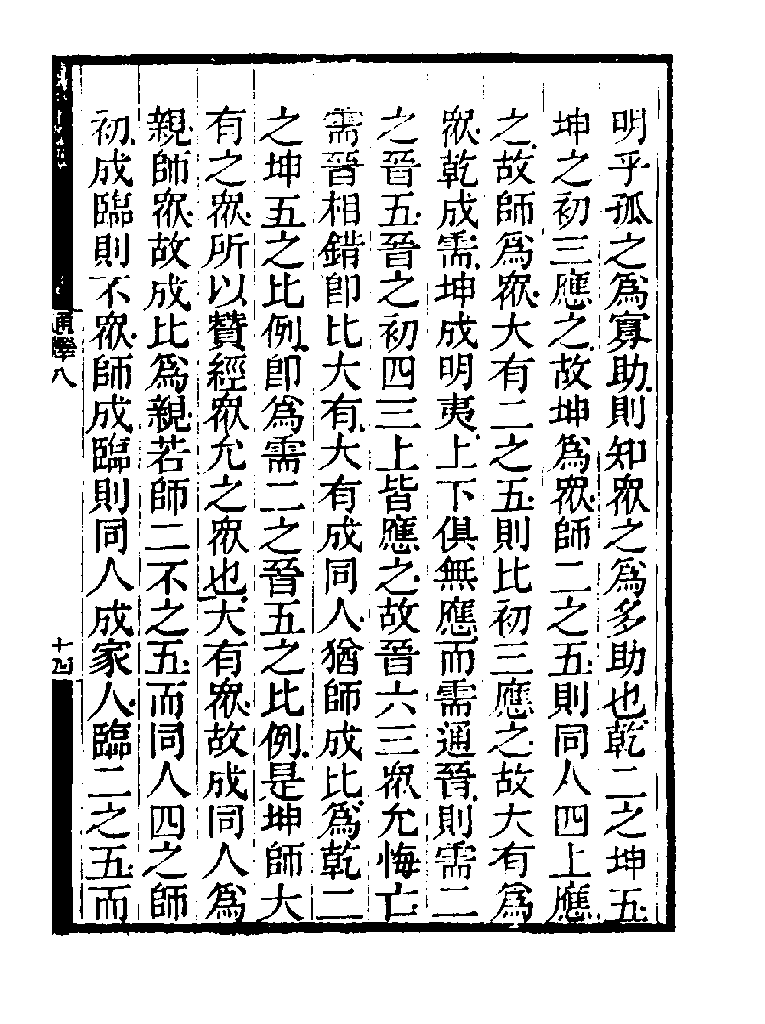 明乎孤之爲寡助則知眾之爲多助也乾二之坤五
坤之初三應之故坤爲眾師二之五則同人四上應
之故師爲眾大有二之五則比初三應之故大有爲
眾乾成需坤成明夷上下俱無應而需通晉則需二
之晉五晉之初四三上皆應之故晉六三眾允悔亡
需晉相錯卽比大有大有成同人猶師成比爲乾二
之坤五之比例卽爲需二之晉五之比例是坤師大
有之眾所以贊經眾允之眾也大有眾故成同人爲
親師眾故成比爲親若師二不之五而同人四之師
初成臨則不眾師成臨則同人成家人臨二之五而
通釋八
十四